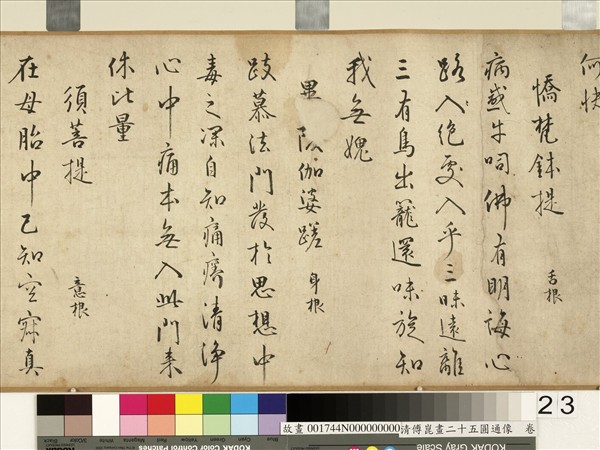 何快
憍梵鉢提 舌根
病感牛呞佛有明誨心
路入絕處入乎三味遠離
三有鳥出籠還味旋知
我無愧
畢 伽婆蹉 身根
跂慕法門發於思想中
毒之深自知痛痹清淨
心中痛本無入此門來
侏比量
須菩提 意根
在母胎中已知空寂真
23
故畫 001744N000000000 清傅崑畫二十五圓通像 卷
Black
3/Color
White
Magenta
Red
Yellow
Green
Cyan
Blue
KODAK Color Control Patches
KODAK Gray Scale